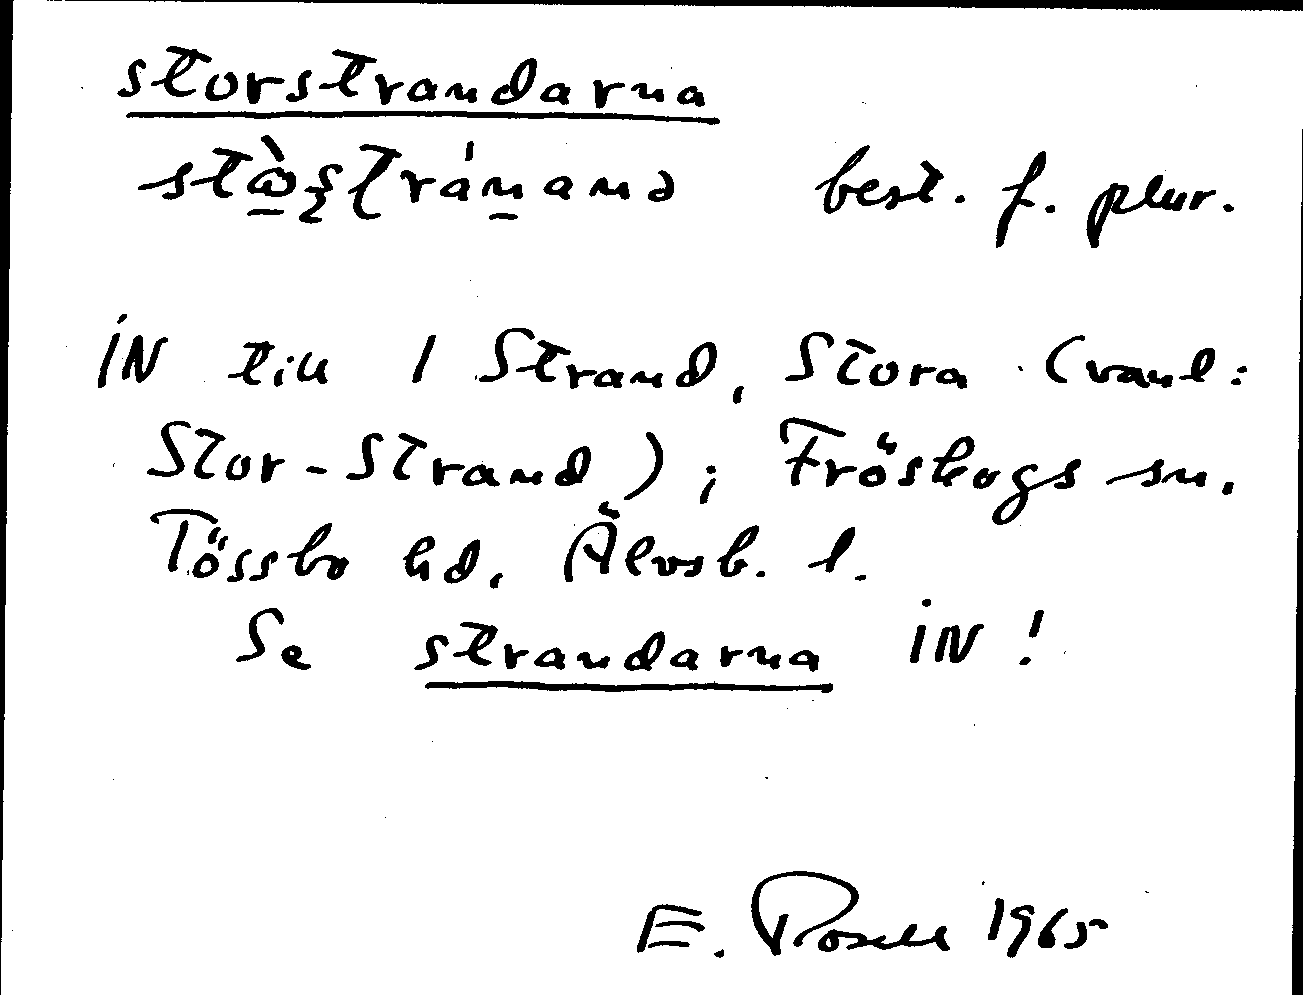 storstrandarna
best. f. plur.
iN till 1 Strand, Stora (vanl:
Stor-Strand); Fröskogs sn.
Tössbo hd. Älvsb. l.
Se strandarna iN!
E. Rosell 1965